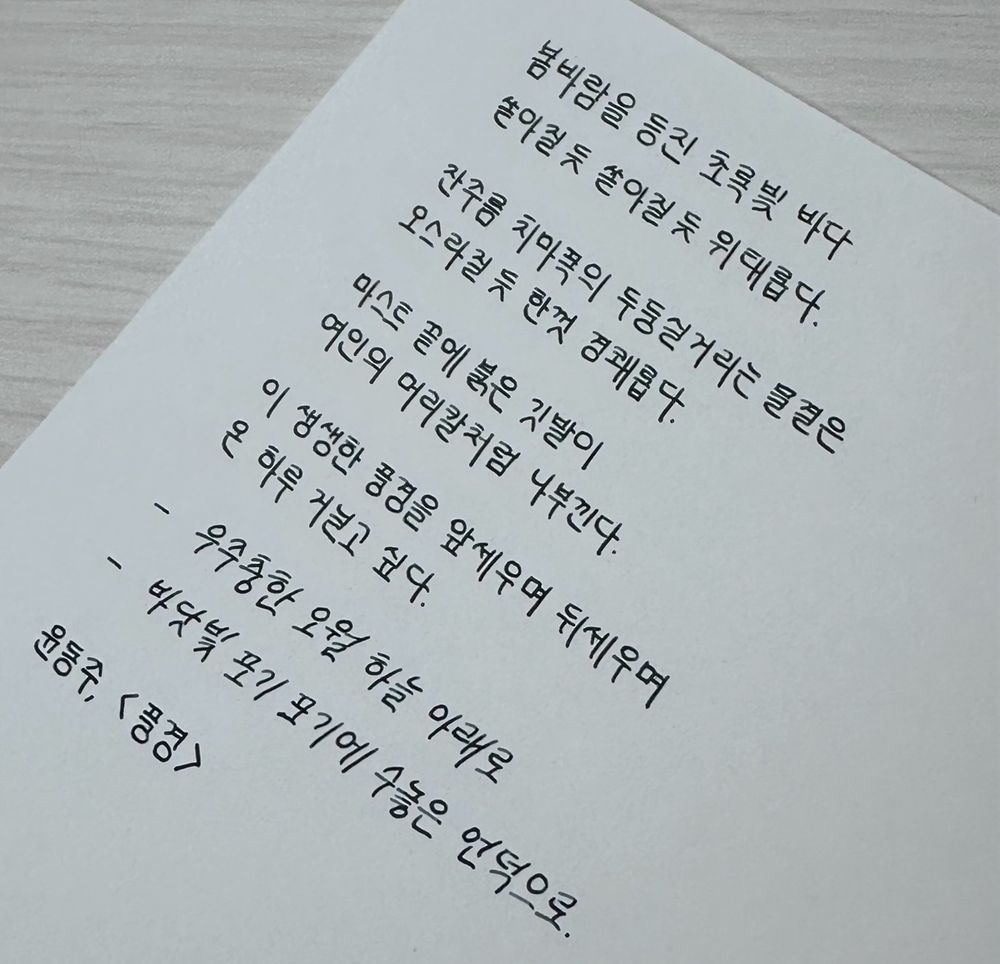 봄바람을 등진 초록빛 바다
쏟아질 듯 쏟아질 듯 위태롭다.
잔주름 치마폭의 두둥실거리는 물결은
오스라질 듯 한껏 경쾌롭다.
마스트 끝에 붉은 깃발이
여인의 머리칼처럼 나부낀다.
이 생생한 풍경을 앞세우며 뒤세우며
온 하루 거닐고 싶다.
- 우중충한 오월 하늘 아래로
- 바닷빛 포기 포기에 수놓은 언덕으로.
윤동주, <풍경>